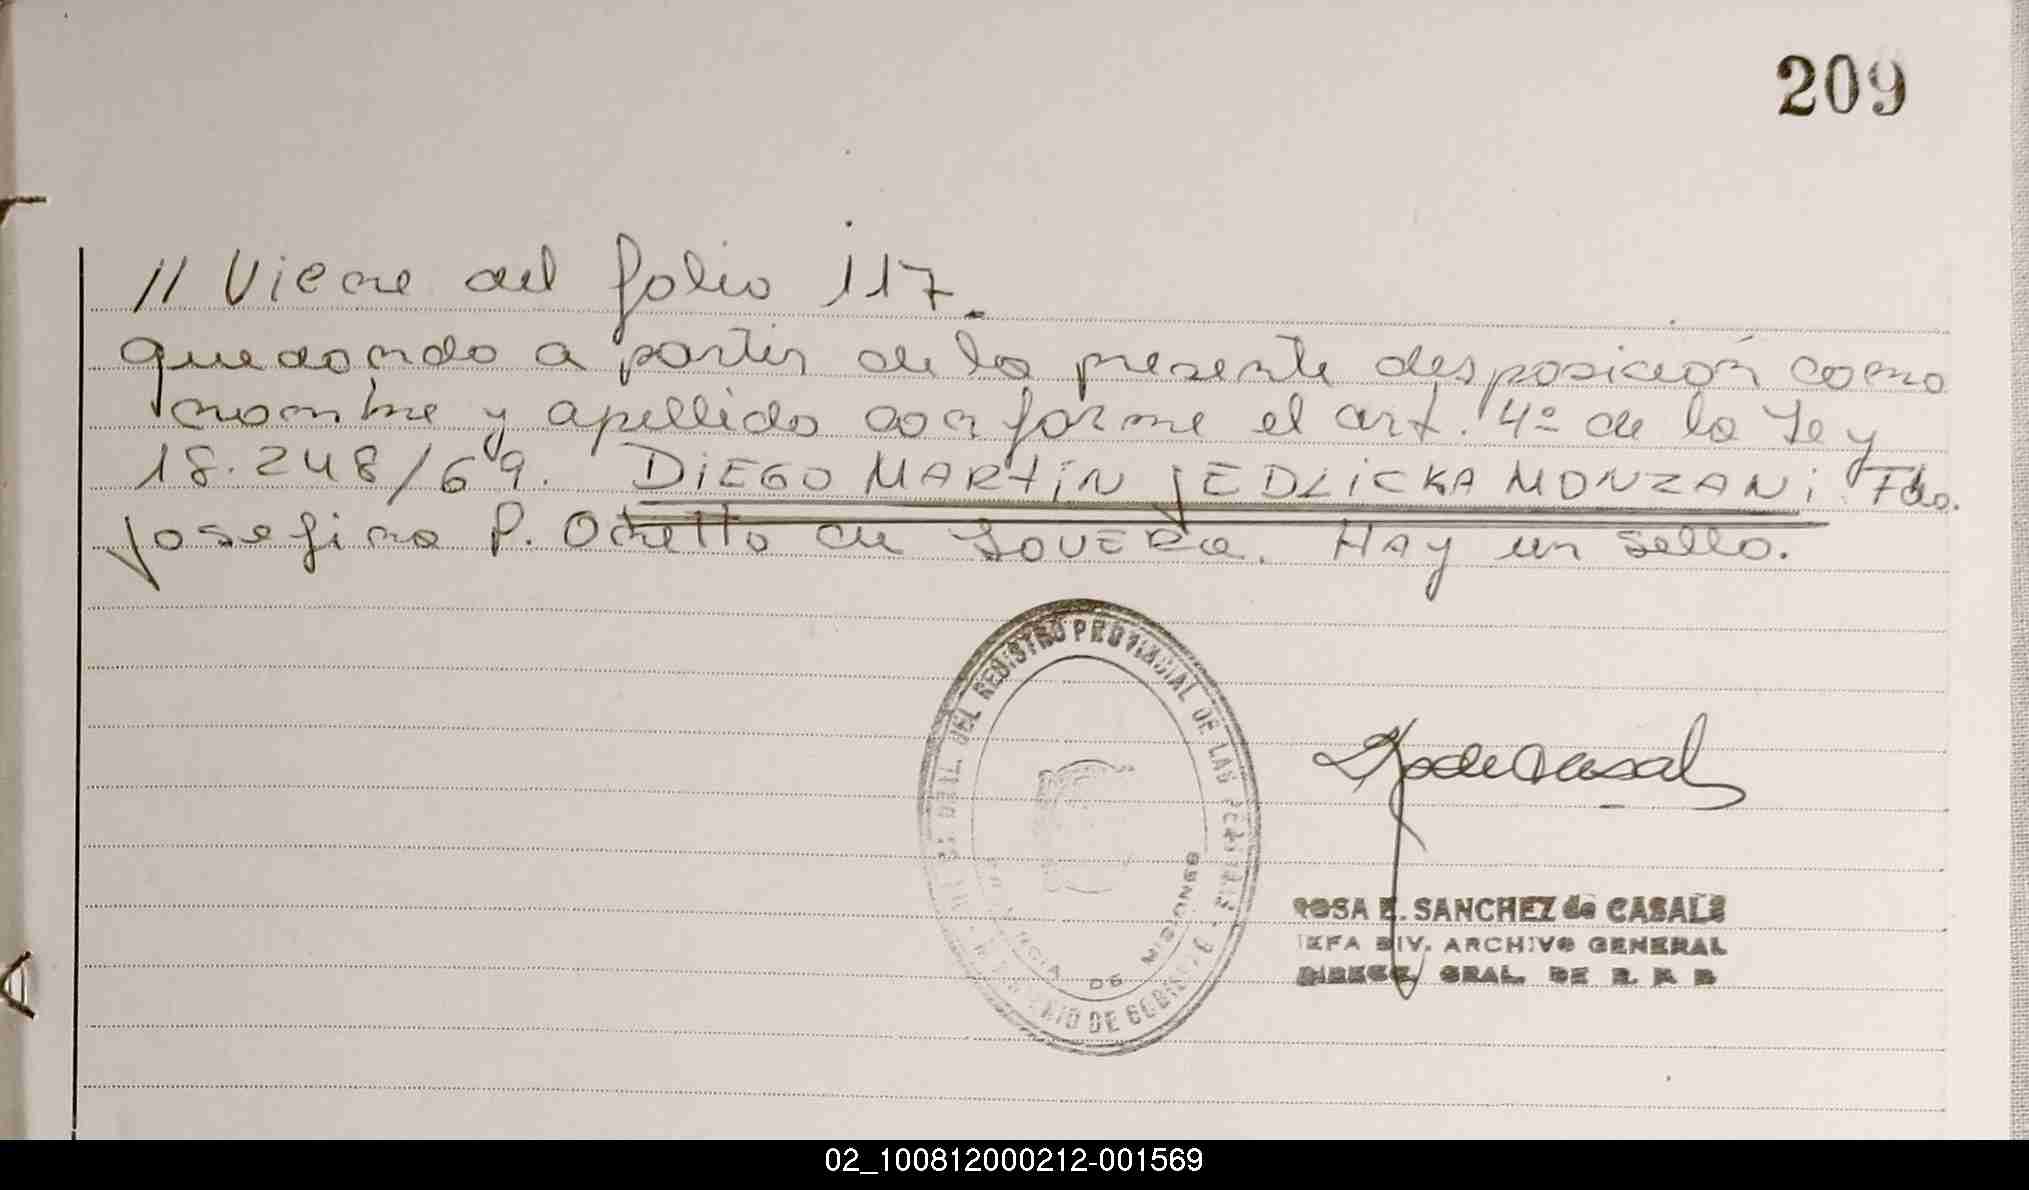 209
// Viene del folio 117.
quedando a partir de la presente disposición como
nombre y apellido conforme el art. 4º de la Ley
18.248/69. DiEGO MARTiN jEDLiCKA MONZANi. Fdo.
Josefina P. Odretto de LOVERA. HAy un sello.
DEL REGISTRO PROVINCIAL DE LAS PERSONAS
DE MISIONES
ROSA E. SANCHEZ de CASALS
JEFA DIV. ARCHIVO GENERAL
DIRECC. GRAL. DE R. P. P.
02_100812000212-001569